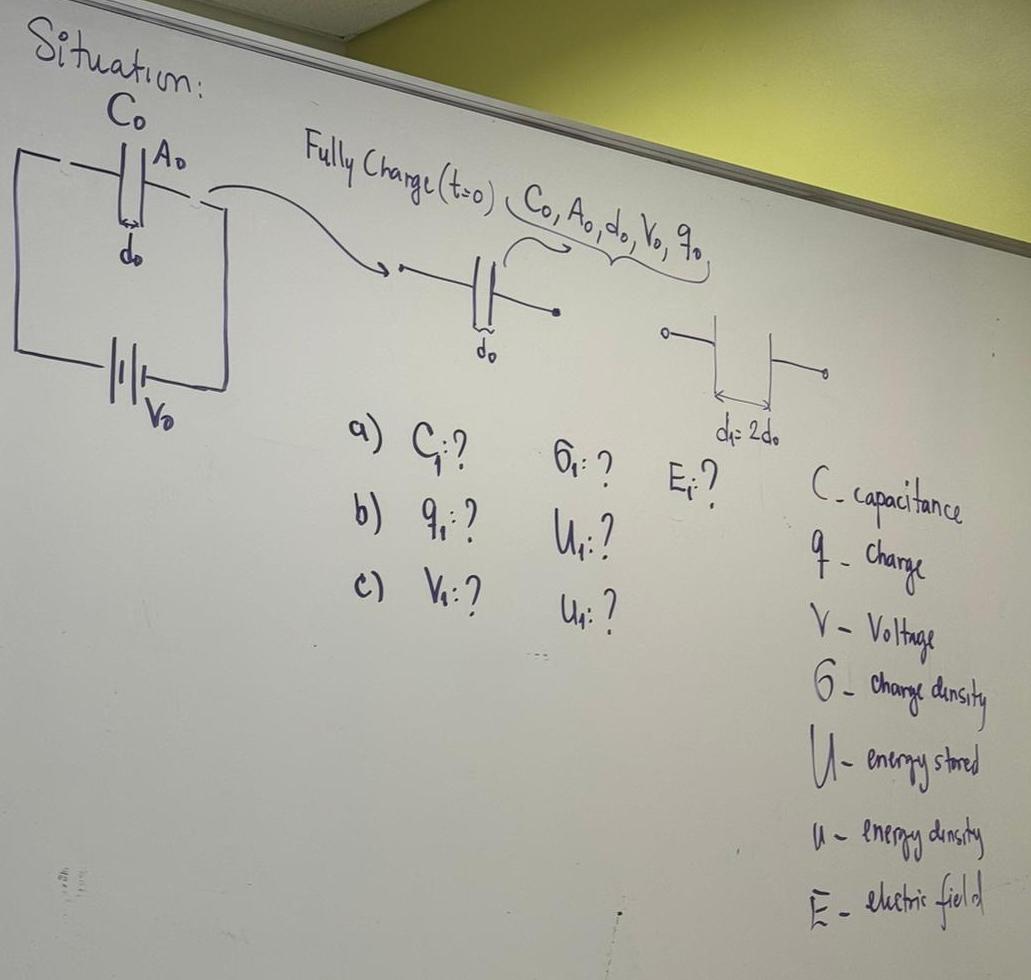 Situation:
C₀
A₀
d₀
V₀
Fully Charge (t=0), C₀, A₀, d₀, V₀, q₀,
d₀
d₁= 2d₀
a) C₁:? σ₁:? E₁:?
b) q₁:? U₁:?
c) V₁:? u₁:?
C - capacitance
q - charge
V - Voltage
σ - charge density
U - energy stored
u - energy density
E - electric field